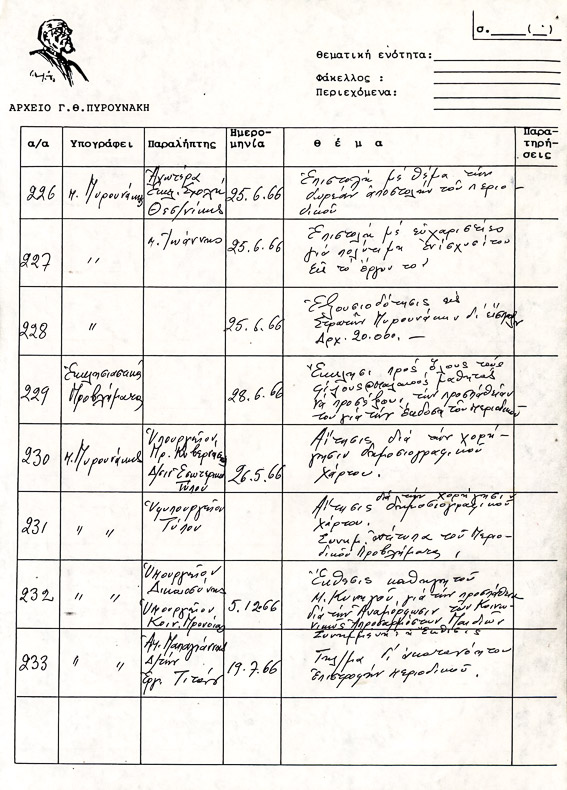 σ.____(__)
Θεματική ενότητα:
Φάκελλος :
Περιεχόμενα:
ΑΡΧΕΙΟ Γ.Θ.ΠΥΡΟΥΝΑΚΗ
α/α Υπογράφει Παραλήπτης Ημερομηνία θ έ μ α Παρατηρήσεις
226 π. Πυρουνάκης Ἀνωτέρα
Ἐκκλ. Σχολή
Θεσ/νίκης 25.6.66 Ἐπιστολή μέ θέμα τήν
δωρεάν ἀποστολήν τοῦ περιο-
δικοῦ
227 " π. Ἰωάννης 25.6.66 Ἐπιστολή μέ εὐχαριστίες
γιά πολύτιμη ἐνίσχυσί του
εἰς τό ἔργον το
228 " 25.6.66 Ἐξουσιοδότησις εἰς
Στρατήν Πυρουνάκην δι' εἴσπραξιν
Δρχ. 20.000. —
229 Ἐκκλησιαστικά
Προβλήματα 28.6.66 Ἔκκλησι πρός ὅλους τούς
μαθητάς
νά προσέξουν τήν προσπάθειάν
του γιά τήν ἔκδοση τοῦ περιοδικοῦ
230 π. Πυρουνάκης Ὑπουργεῖον
Πρ. Κυβερνήσεως
Δ/σιν Ἐσωτερικοῦ
Τύπου 26.5.66 Αἴτησις διά τήν χορή-
γησιν δημοσιογραφικοῦ
χάρτου.
231 " " Ὑφυπουργεῖον
Τύπου Αἴτησις διά τήν χορήγησιν
δημοσιογραφικοῦ
χάρτου.
Συνημ. ἔντυπα τοῦ Περιο-
δικοῦ Προβλήματα
232 " " Ὑπουργεῖον
Δικαιοσύνης
Ὑπουργεῖον
Κοιν. Προνοίας 5.12.66 Ἔκθεσις καθηγητοῦ
Μ. Κυνηγοῦ, γιά τήν προσπάθεια
διά τήν Ἀναμόρφωσιν τῶν Κοινω-
νικῶς Ἀπροσαρμόστων Παιδιῶν
Συνημμένη ἡ ἔκθεσις
233 " " Δ/τήν
Ἐργ. Τιτάν 19.7.66 Τηλ/μα δι' ἀκαταλόγητον
ἐπιστροφήν περιοδικοῦ.